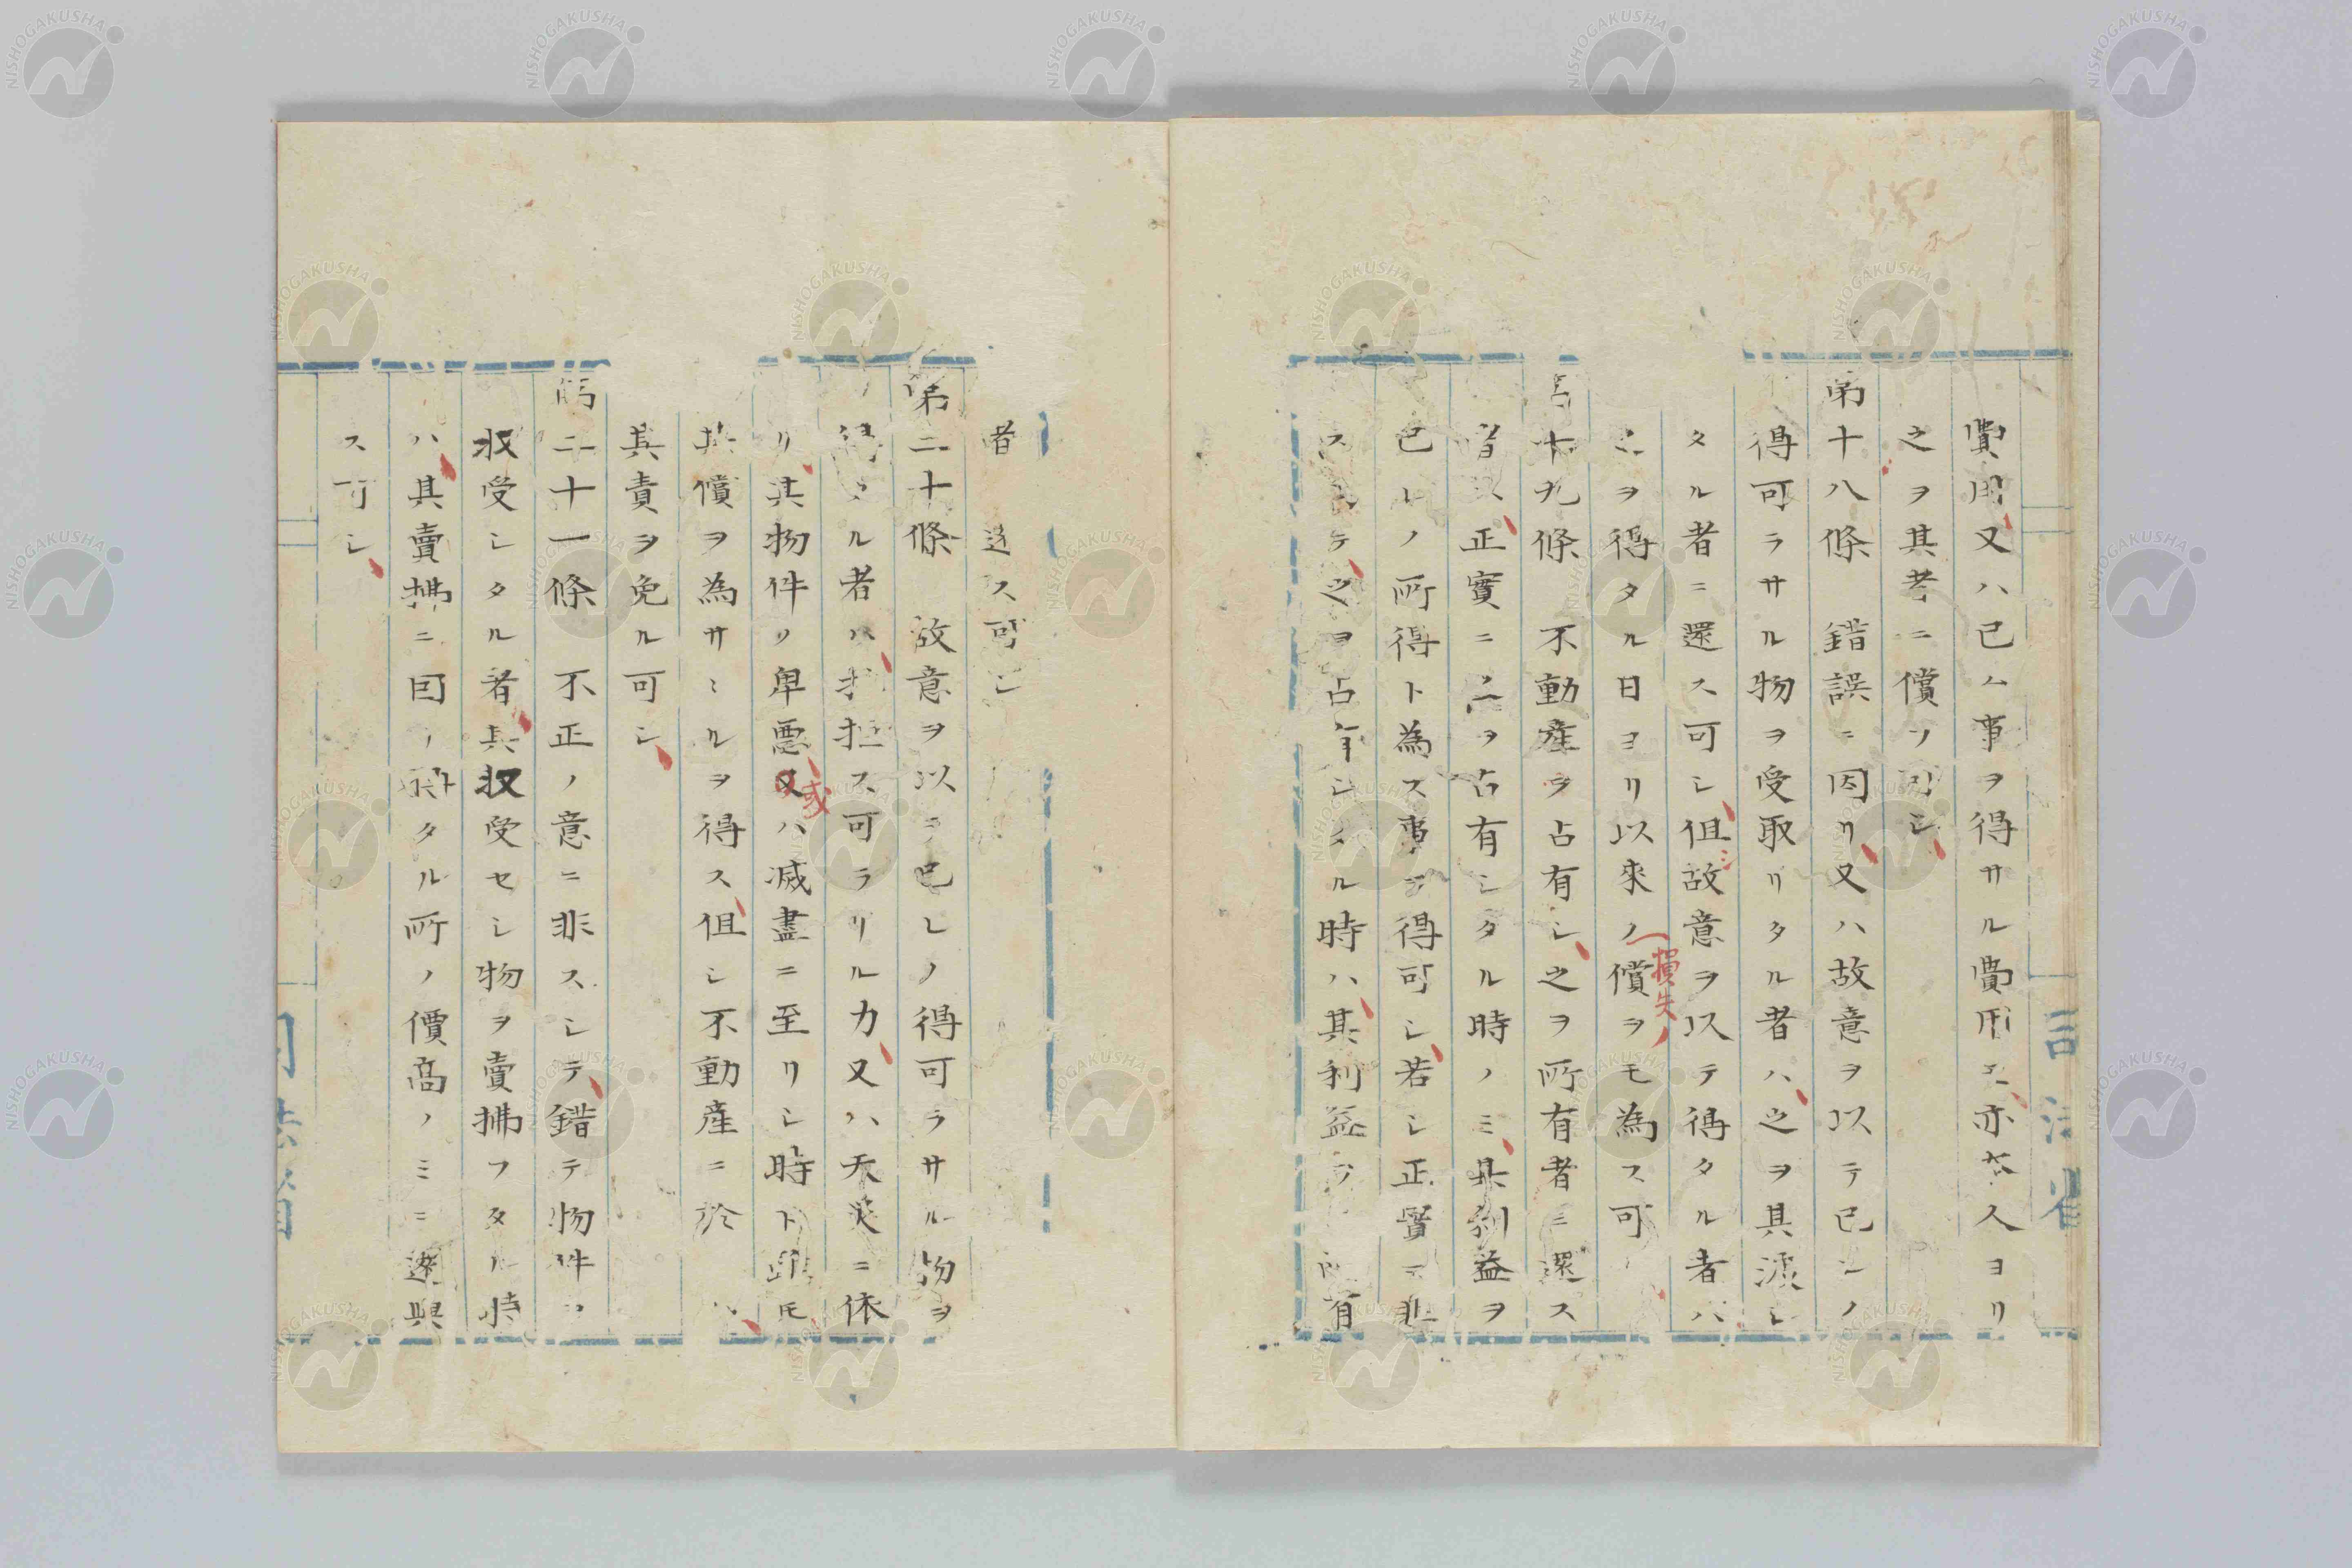 費用又ハ已ム事ヲ得サル費用モ亦本人ヨリ
之ヲ其者ニ償フ可シ
第十八條 錯誤ニ因リ又ハ故意ヲ以テ已レノ
得可ラサル物ヲ受取リタル者ハ之ヲ其渡シ
タル者ニ還ス可シ但シ故意ヲ以テ得タル者ハ
之ヲ得タル日ヨリ以來ノ損失ノ償ヲモ為ス可
十九條 不動産ヲ占有シ之ヲ所有者ニ還ス
者 正實ニ之ヲ占有シタル時ノミ其利益ヲ
已レノ所得ト為ス事ヲ得可シ若シ正實ニ非
ス テ之ヲ占有シタル時ハ其利益ヲ 有
者 還ス可シ
第二十條 故意ヲ以テ已レノ得可ラサル物ヲ
得タル者ハ 担ス可ラサル力又ハ天災ニ依
リ其物件ノ卑悪或又ハ滅盡ニ至リシ時ト雖モ
其償ヲ為サヽルヲ得ス但シ不動産ニ於
其責ヲ免ル可シ
第二十一條 不正ノ意ニ非スシテ錯テ物件ヲ
収受シタル者其収受セシ物ヲ賣拂フタル時
ハ其賣拂ニ因リ得タル所ノ價高ノミニ還與
ス可シ
司法省
司法省
NISHOGAKUSHA